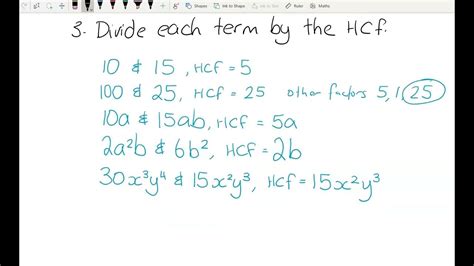 Shapes Ink to Shape Ink to Math
3. Divide each term by the HCf.
10 & 15, HCf = 5
100 & 25, HCF = 25 other factors 5, 1, 25
10a & 15ab, HCF = 5a
2a²b & 6b², HCF = 2b
30x³y⁴ & 15x²y³, HCf = 15x²y³